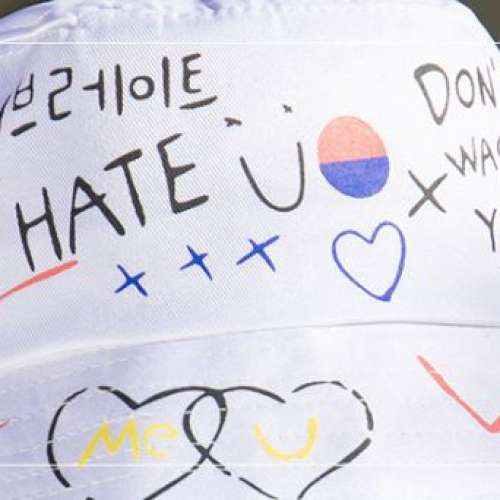 브레이트
HATE Ü
DON'
X
Me U